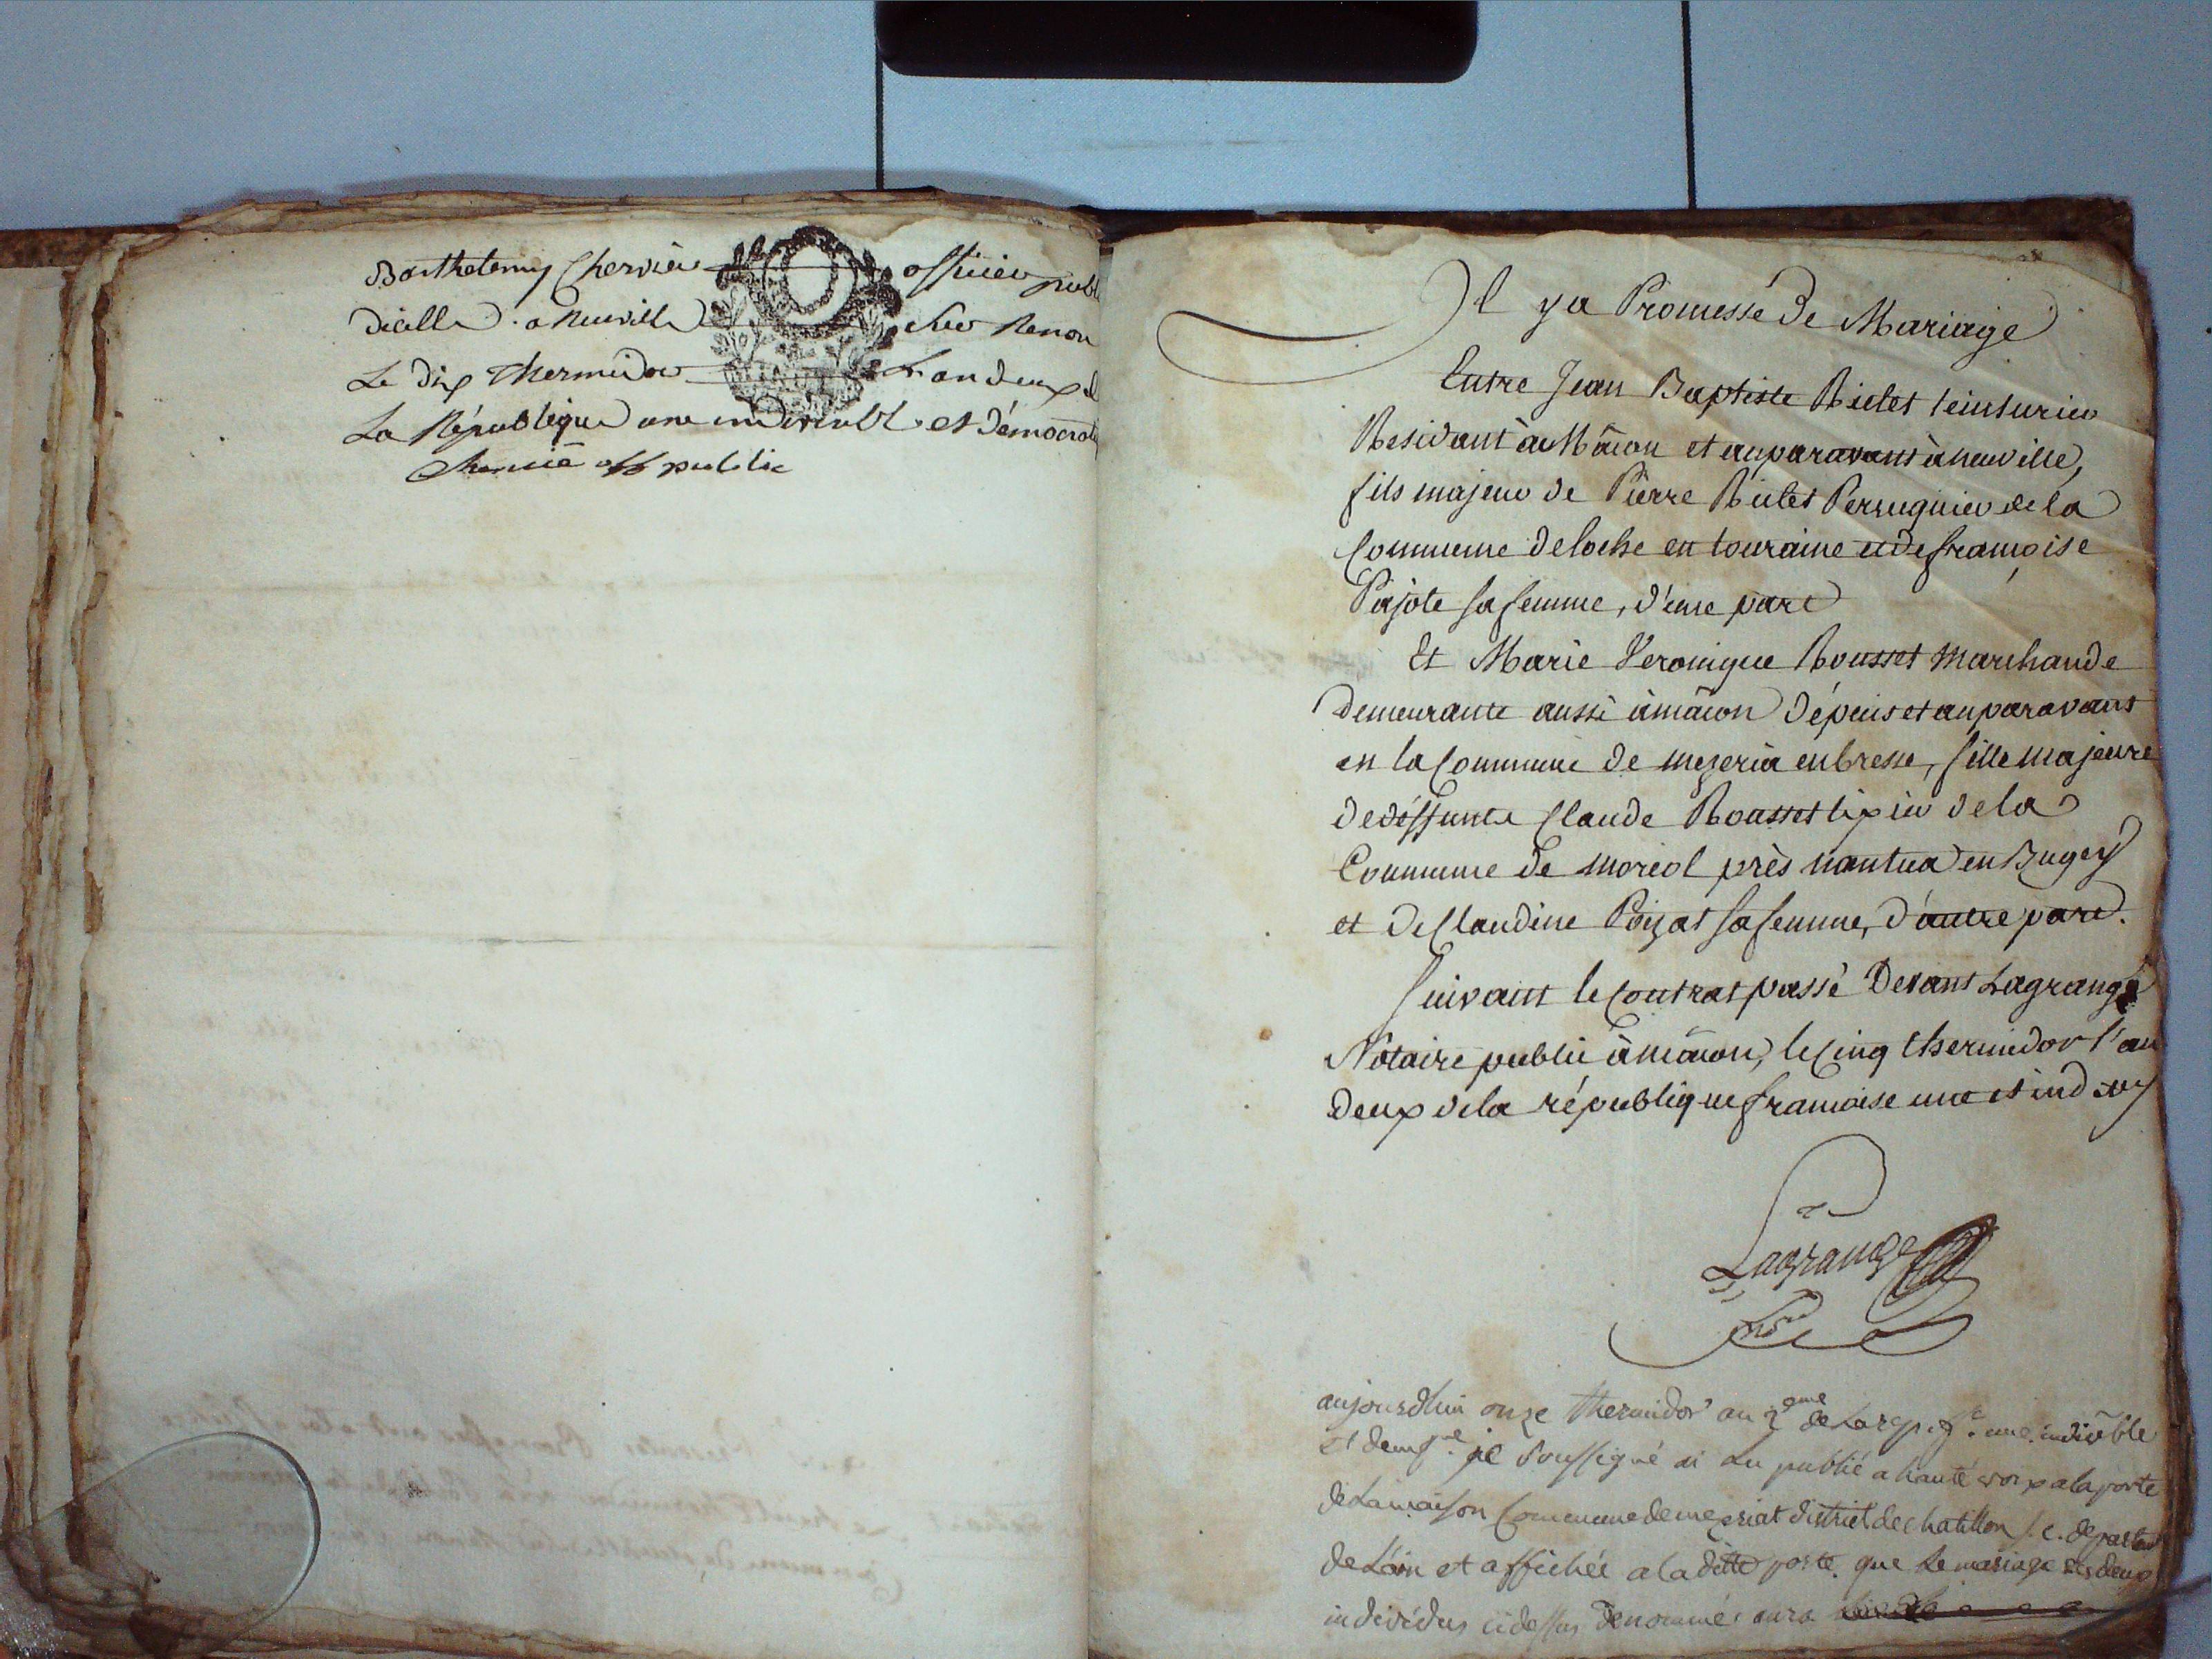 Barthelemy Chervie officier publ
dicelle a Neuville les Renon
Le dix Thermidor L'an deux d
La République une indivisible et démocrati
off public
Il ya Promesse De Mariage
Entre Jean Baptiste Rielet teinturier
Residant à Mâcon et auparavant à neuville,
fils majeur de Pierre Rielet Perruquier de la
Commune de loche en touraine et de françoise
Pajote sa femme, d'une part
Et Marie Veronique Rousset Marchande
Demeurante aussi à mâcon Dépuis et auparavant
en la Commune de mezeria en bresse, fille majeure
de déffunte Claude Rousset tixier de la
Commune de moriol près nantua en Bugey
et de Claudine Poizat sa femme, d'autre part.
Suivant le Contrat passé Devant Lagrange
Notaire public à mâcon, le Cinq thermidor l'an
Deux de la république francoise une et indivy
Lagrange
aujourdhui onze thermidor an 2eme de La rep. f.se une indivible
et demq.ue je soussigné ai Lu publié a hauté voix a la porte
de La maison Commune de mezeriat district de chatillon s. c. departent
de L'ain et affichée a la ditte porte que Le mariage des deux
individus cidessus dénommé aura